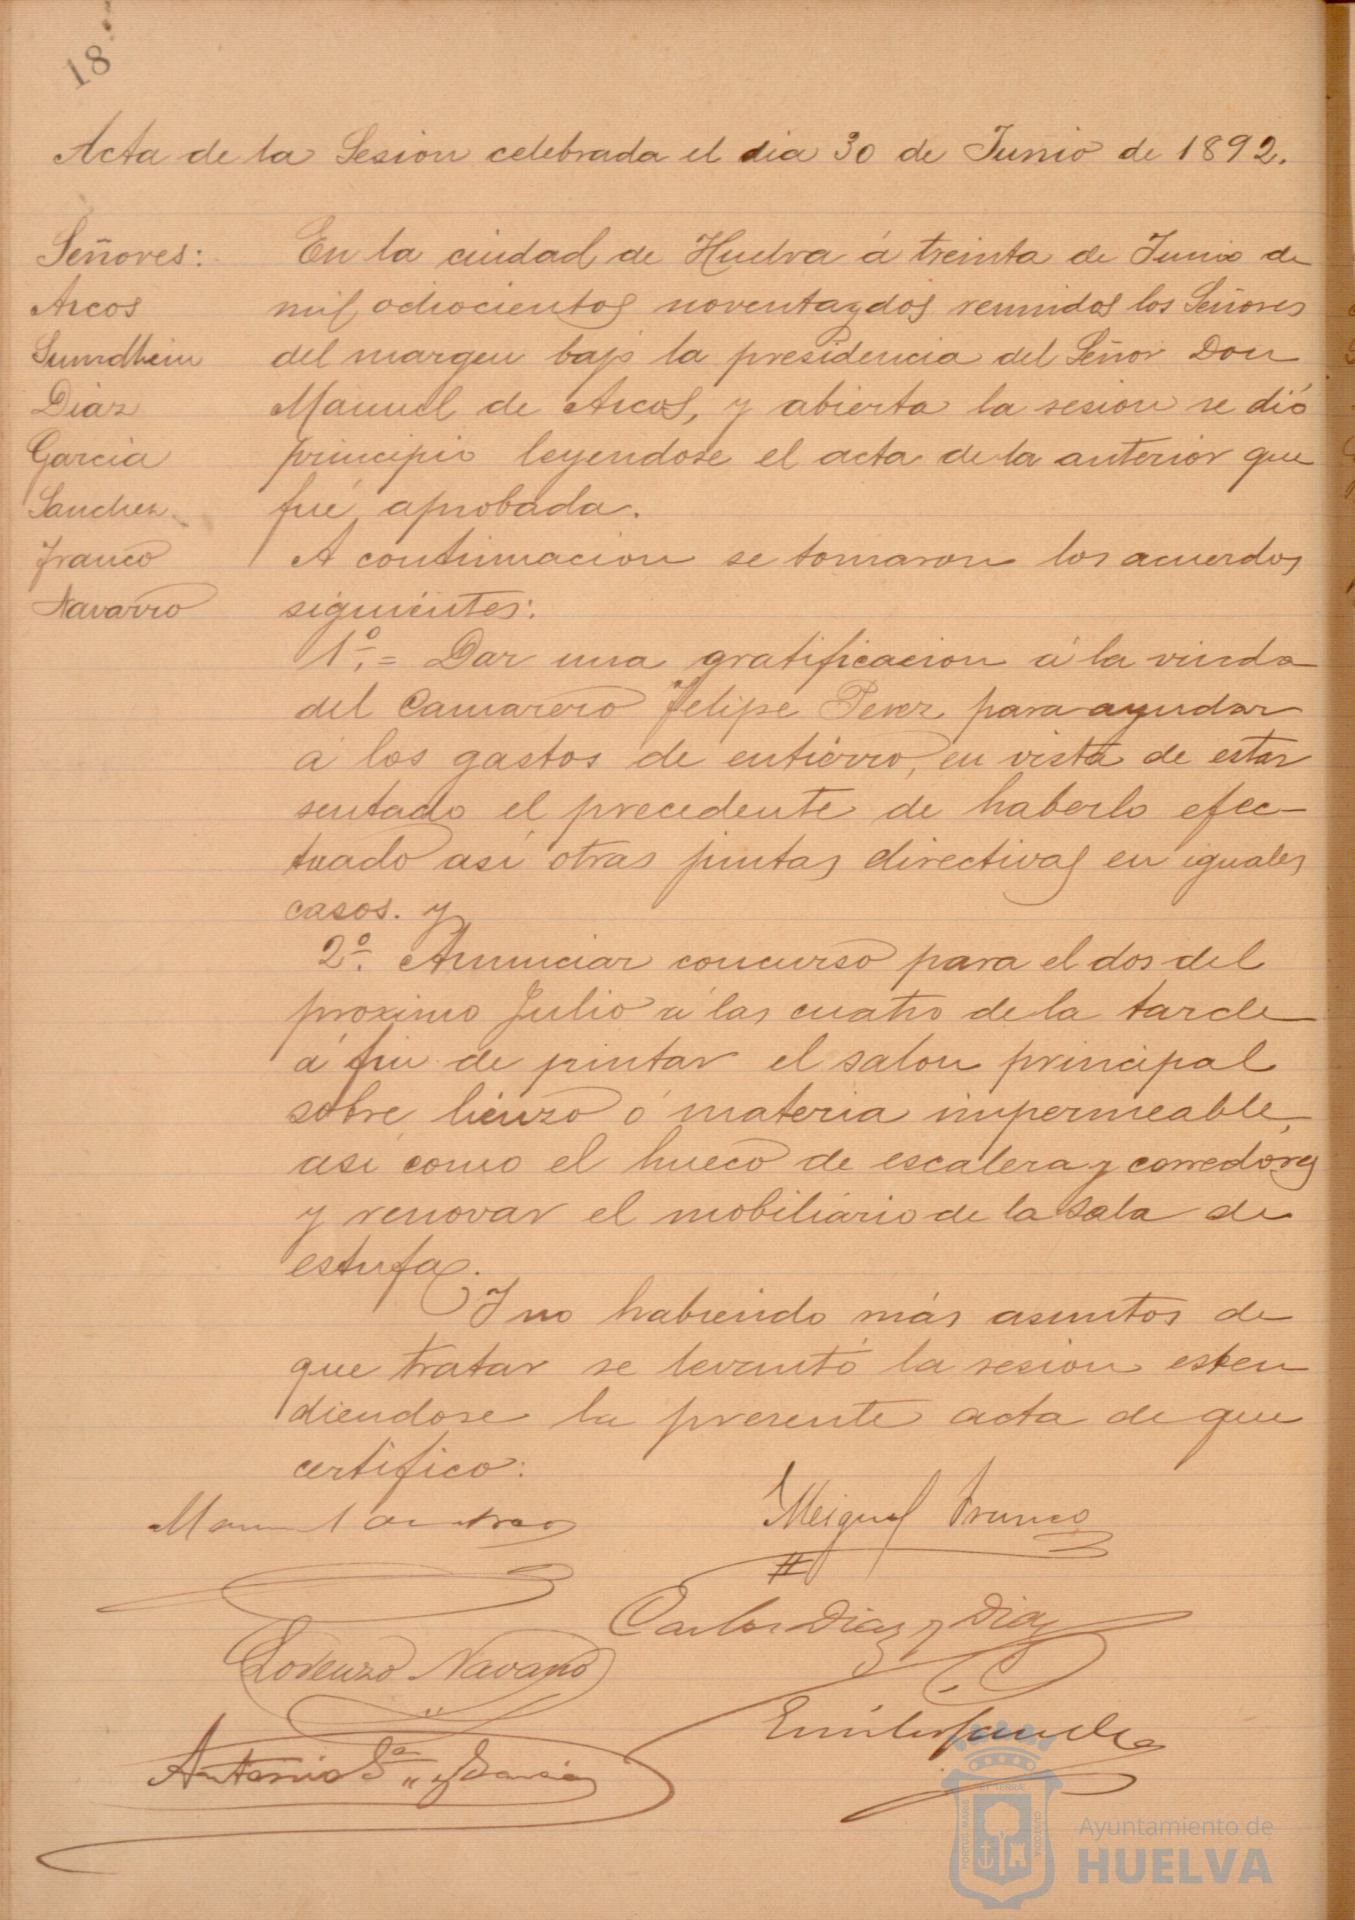 18
Acta de la Sesion celebrada el dia 30 de Junio de 1892.
Señores:
Arcos
Sundheim
Diaz
Garcia
Sanchez
Franco
Navarro
En la ciudad de Huelva á treinta de Junio de
mil ochocientos noventa y dos reunidos los Señores
del margen bajo la presidencia del Señor Don
Manuel de Arcos, y abierta la sesion se dió
principio leyendose el acta de la anterior que
fué aprobada.
A continuacion se tomaron los acuerdos
siguientes:
1º = Dar una gratificacion á la viuda
del Camarero Felipe Perez para ayudar
á los gastos de entierro, en vista de estar
sentado el precedente de haberlo efec-
tuado así otras juntas directivas en iguales
casos. y
2º. Anunciar concurso para el dos del
proximo Julio á las cuatro de la tarde
á fin de pintar el salon principal
sobre lienzo ó materia impermeable,
asi como el hueco de escalera y corredores
y renovar el mobiliario de la sala de
estufa.
Y no habiendo más asuntos de
que tratar se levantó la sesion esten
diendose la presente acta de que
certifico:
Manuel de Arcos
Meiguel Franco
Carlos Diaz y Diaz
Lorenzo Navarro
Emilio Sanchez
Antonio Gª y Garcia
PORTUS MARIS ET TERRAE CUSTODIA
Ayuntamiento de
HUELVA